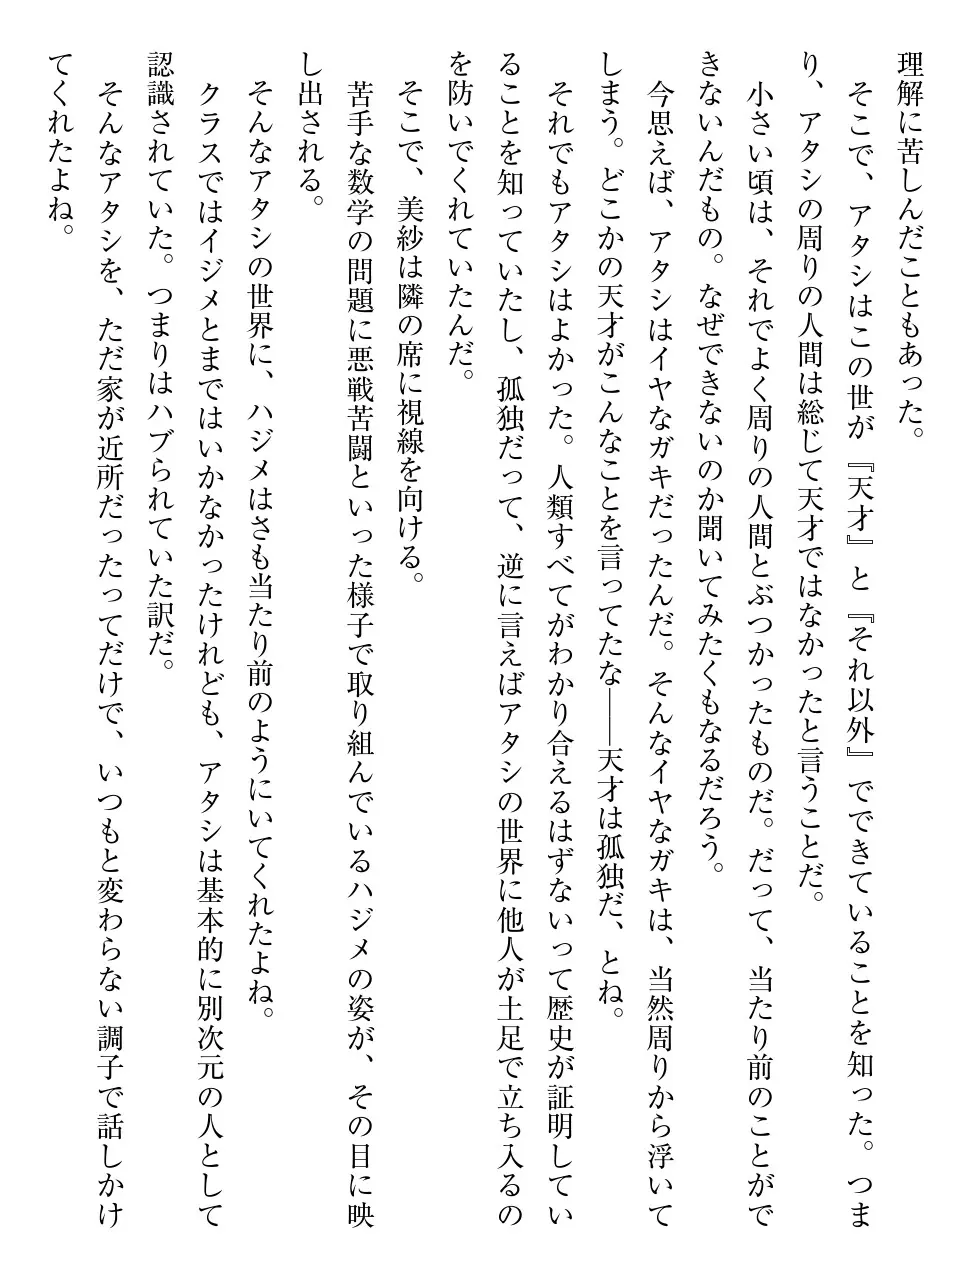 理解に苦しんだこともあった。
　そこで、アタシはこの世が『天才』と『それ以外』でできていることを知った。つま
り、アタシの周りの人間は総じて天才ではなかったと言うことだ。
　小さい頃は、それでよく周りの人間とぶつかったものだ。だって、当たり前のことがで
きないんだもの。なぜできないのか聞いてみたくもなるだろう。
　今思えば、アタシはイヤなガキだったんだ。そんなイヤなガキは、当然周りから浮いて
しまう。どこかの天才がこんなことを言ってたな――天才は孤独だ、とね。
　それでもアタシはよかった。人類すべてがわかり合えるはずないって歴史が証明してい
ることを知っていたし、孤独だって、逆に言えばアタシの世界に他人が土足で立ち入るの
を防いでくれていたんだ。
　そこで、美紗は隣の席に視線を向ける。
　苦手な数学の問題に悪戦苦闘といった様子で取り組んでいるハジメの姿が、その目に映
し出される。
　そんなアタシの世界に、ハジメはさも当たり前のようにいてくれたよね。
　クラスではイジメとまではいかなかったけれども、アタシは基本的に別次元の人として
認識されていた。つまりはハブられていた訳だ。
　そんなアタシを、ただ家が近所だったってだけで、いつもと変わらない調子で話しかけ
てくれたよね。